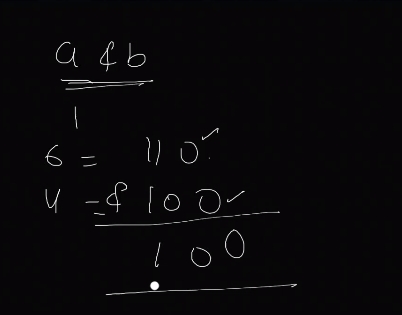 a & b
1
6 = 110
4 = & 100
100